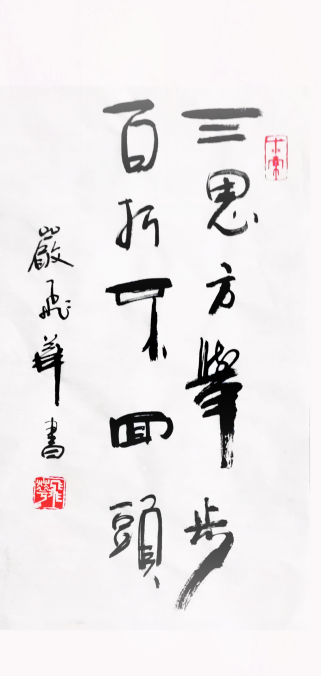 三思方舉步
百折不回頭
嚴飛華書